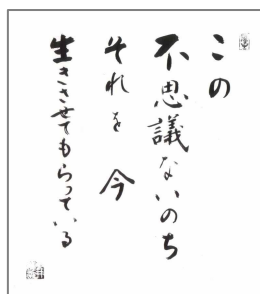 この
不思議ないのち
それを 今
生きさせてもらっている